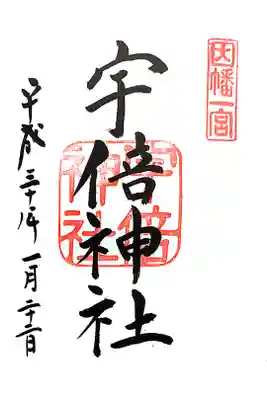 因幡一宮
宇倍神社
宇倍神社
平成三十年一月二十二日